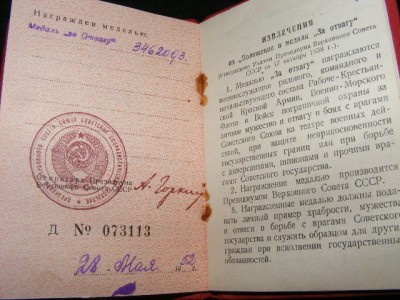 Награжден медалью:
Медаль „за Отвагу“
3462093.
Секретарь Президиума
Верховного Совета СССР
А. Горкин
Д № 073113
28 Мая 1952 г.
ИЗВЛЕЧЕНИЯ
из „Положения о медали „За отвагу“
(Утверждено Указом Президиума Верховного Совета
СССР от 17 октября 1938 г.).
1. Медалью „За отвагу“ награждаются
военнослужащие рядового, командного и
начальствующего состава Рабоче-Крестьян-
ской Красной Армии, Военно-Морского
Флота и Войск пограничной охраны за
личное мужество и отвагу в боях с врагами
Советского Союза на театре военных дей-
ствий, при защите неприкосновенности
государственных границ или при борьбе
с диверсантами, шпионами и прочими вра-
гами Советского государства.
2. Награждение медалью производится
Президиумом Верховного Совета СССР.
8. Награжденные медалью должны пода-
вать личный пример храбрости, мужества
и отваги в борьбе с врагами Советского
государства и служить образцом для других
граждан при исполнении государственных
обязанностей.